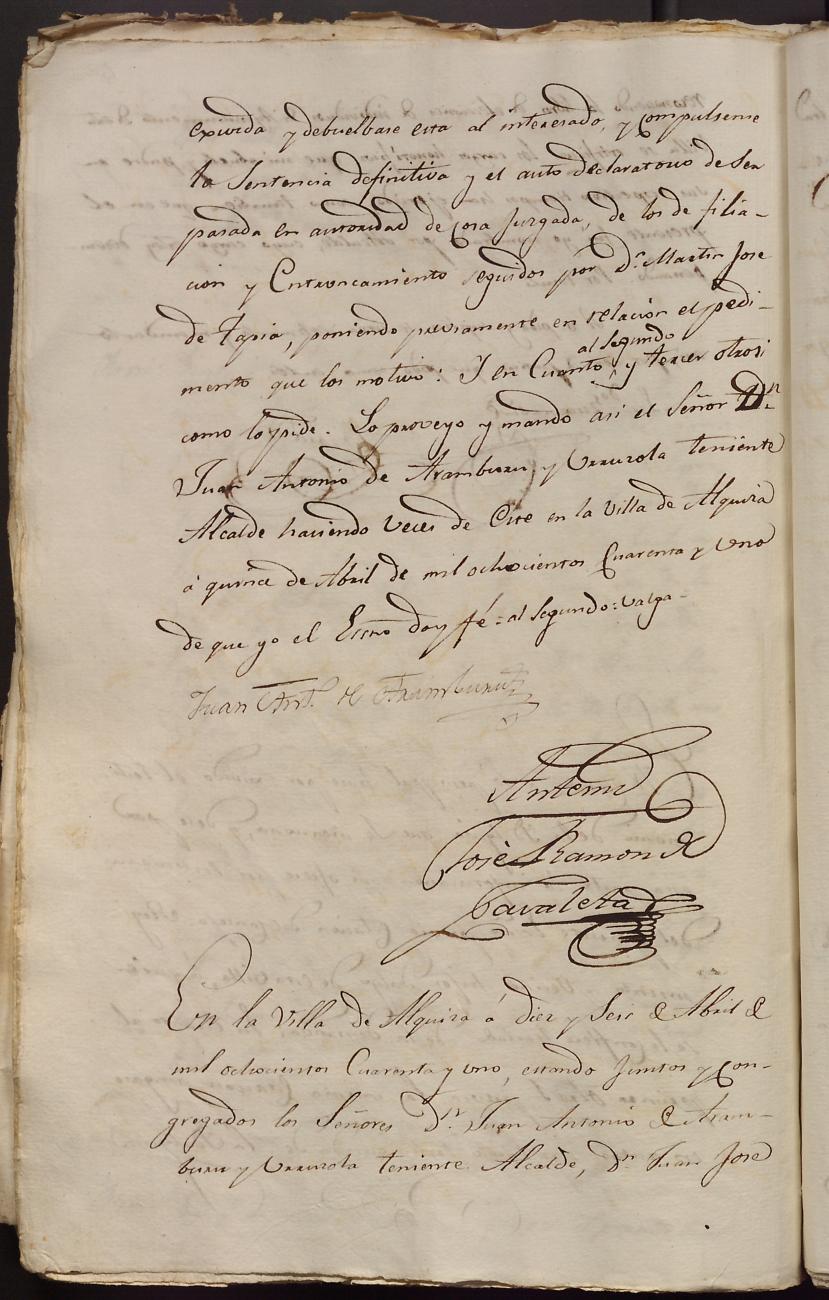 exivida y debuelbase esta al interesado, y Compulsense
la Sentencia definitiva y el auto declaratorio de ser
pasada en autoridad de Cosa Juzgada, de los de filia-
cion y Entroncamiento seguidos por Dn. Martin Jose
de Tapia, poniendo previamente en relacion el pedi-
mento que los motivó: I en Cuanto al segundo y tercer otrosi
como lo pide. Lo proveyo y mando asi el Señor Dn.
Juan Antonio de Aramburu y Urruzola teniente
Alcalde haciendo veces de Este en la Villa de Alquiza
á quince de Abril de mil ochocientos Cuarenta y uno
de que yo el Essno doy fé = al segundo = valga -
Juan Ant. de Aramburu
Antemi
José Ramon de
Zavaleta
En la Villa de Alquiza á diez y Seis de Abril de
mil ochocientos Cuarenta y uno, estando Juntos y Con-
gregados los Señores Dn. Juan Antonio de Aram-
buru y Urruzola teniente Alcalde, Dn. Juan José